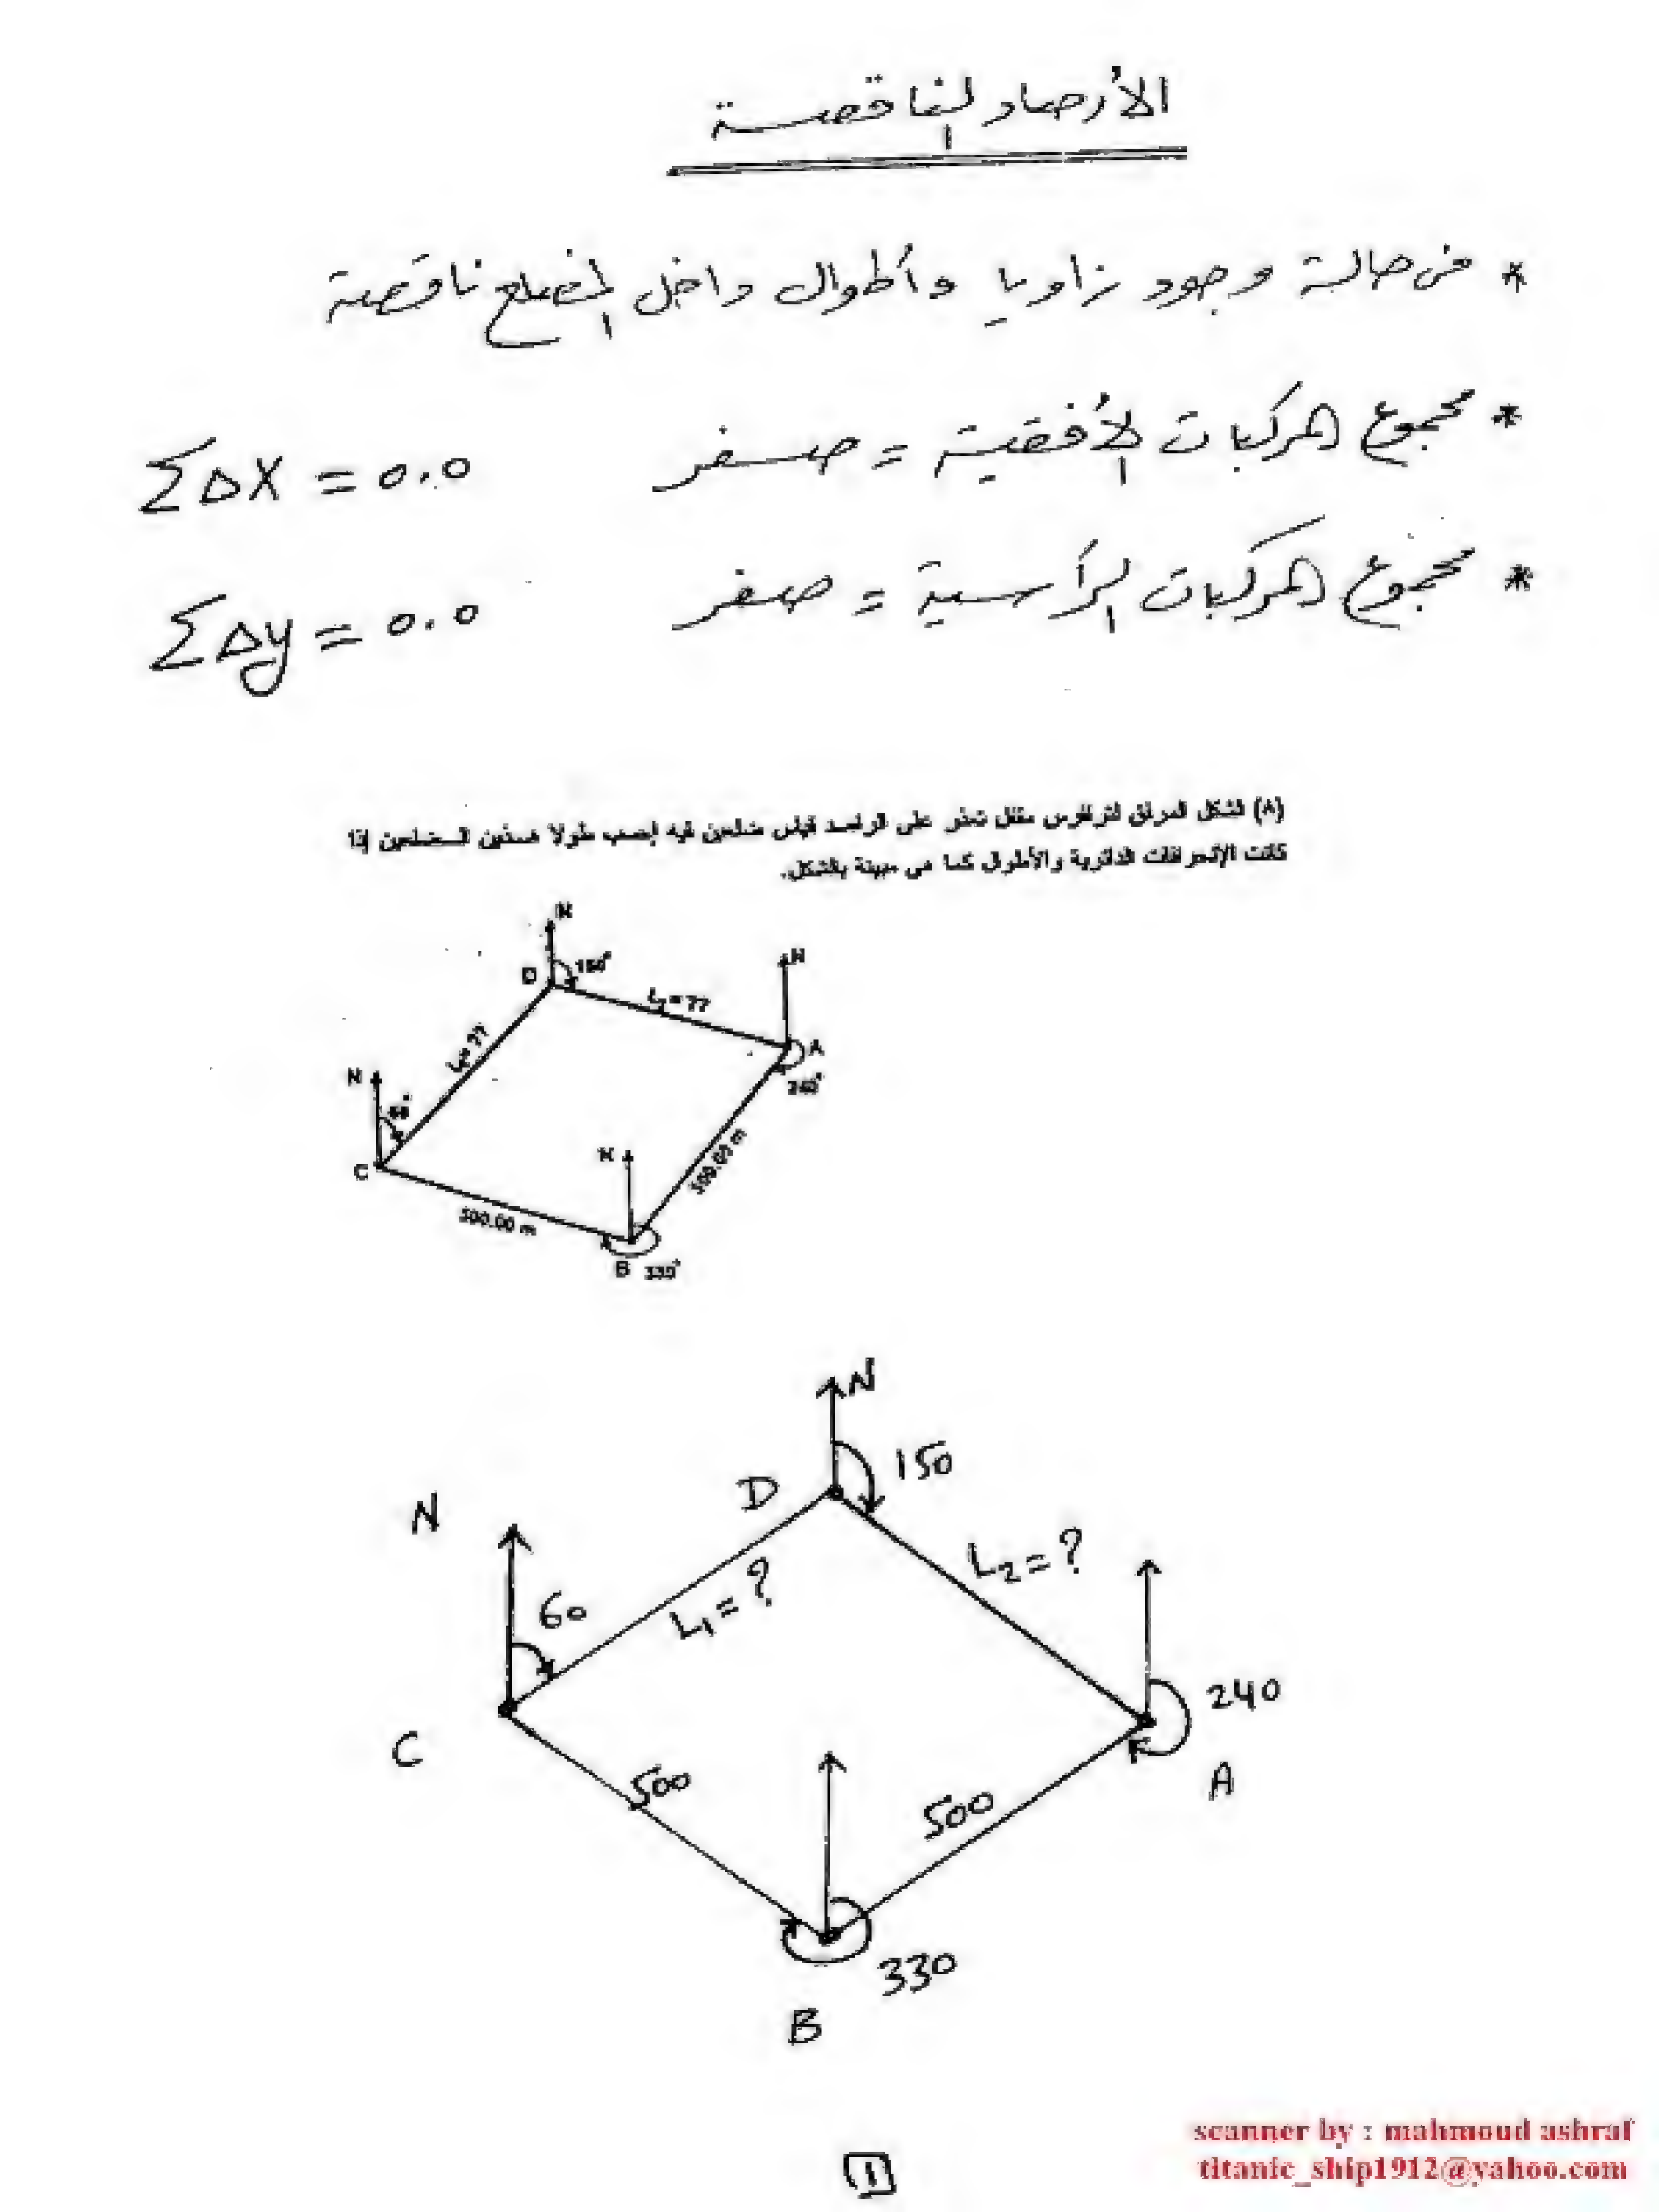 الأرصاد الناقصة
* فى حالة وجود زاويا وأطوال داخل المضلع ناقصة
* مجموع المركبات الأفقية = صفر ΣΔX = 0.0
* مجموع المركبات الرأسية = صفر ΣΔy = 0.0
(٨) الشكل المرفق لترافرس مقفل تعذر على الراصد قياس ضلعين فيه إحسب طولا هذين الضلعين إذا
كانت الإنحرافات الدائرية والأطوال كما هى مبينة بالشكل.
N
N
D
150°
L₂=??
L₁=??
A
N
240°
60°
N
500.00 m
C
500.00 m
B 330°
N
150
D
N
L₂=?
60
L₁=?
240
C
500
500
A
330
B
1
scanner by : mahmoud ashraf
titanic_ship1912@yahoo.com